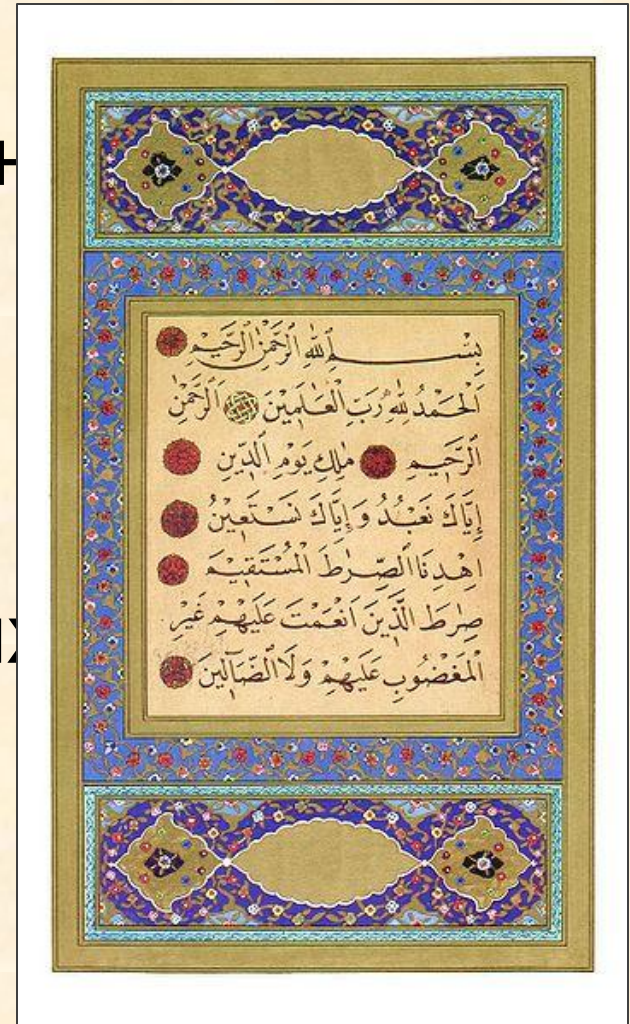 بِسْــــــــمِ ٱللّٰهِ ٱلرَّحْمٰنِ ٱلرَّحٖيمِ
اَلْحَمْدُ لِلّٰهِ رَبِّ الْعَالَمٖينَ اَلرَّحْمٰنِ
الرَّحٖيمِ مٰلِكِ يَوْمِ الدّٖينِ
إِيَّاكَ نَعْبُدُ وَ إِيَّاكَ نَسْتَعٖينُ
اِهْدِنَا الصِّرٰطَ الْمُسْتَقٖيمَ
صِرٰطَ الَّذٖينَ اَنْعَمْتَ عَلَيْهِمْ غَيْرِ
الْمَغْضُوبِ عَلَيْهِمْ وَلَا الضَّآلّٖينَ